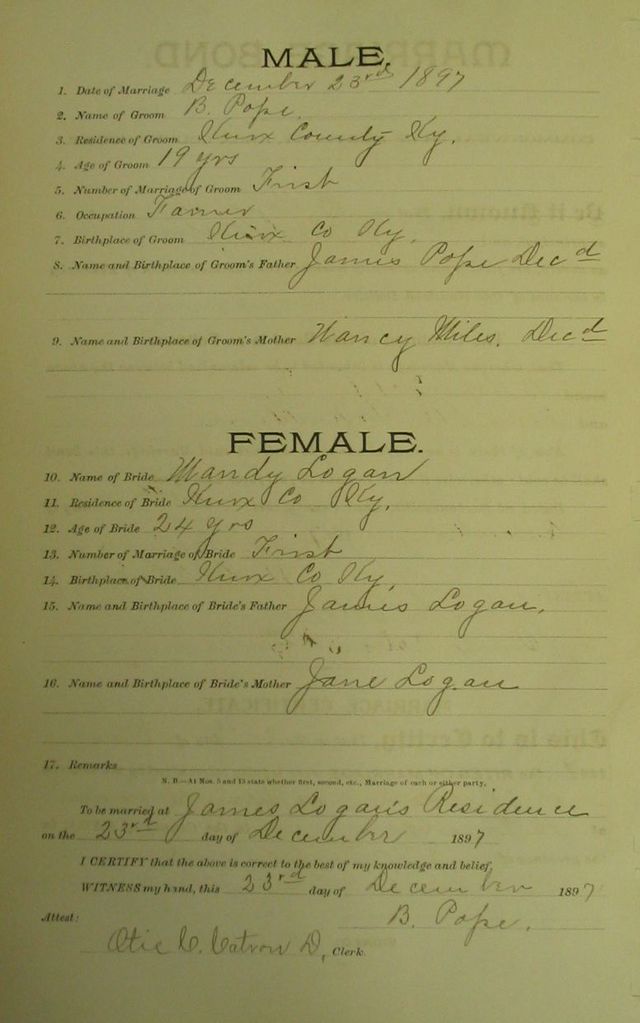 MALE.
1. Date of Marriage December 23rd 1897
2. Name of Groom B. Pope.
3. Residence of Groom Knox County Ky.
4. Age of Groom 19 yrs
5. Number of Marriage of Groom First
6. Occupation Farmer
7. Birthplace of Groom Knox Co Ky.
8. Name and Birthplace of Groom's Father James Pope Decd
9. Name and Birthplace of Groom's Mother Nancy Miles. Decd
FEMALE.
10. Name of Bride Mandy Logan
11. Residence of Bride Knox Co Ky.
12. Age of Bride 24 yrs
13. Number of Marriage of Bride First
14. Birthplace of Bride Knox Co Ky.
15. Name and Birthplace of Bride's Father James Logan.
16. Name and Birthplace of Bride's Mother Jane Logan
17. Remarks
N. B.—At Nos. 5 and 13 state whether first, second, etc., Marriage of each or either party.
To be married at James Logan's Residence
on the 23rd day of December 1897
I CERTIFY that the above is correct to the best of my knowledge and belief.
WITNESS my hand, this 23rd day of December 1897
B. Pope.
Attest:
Otie C. Catron D, Clerk